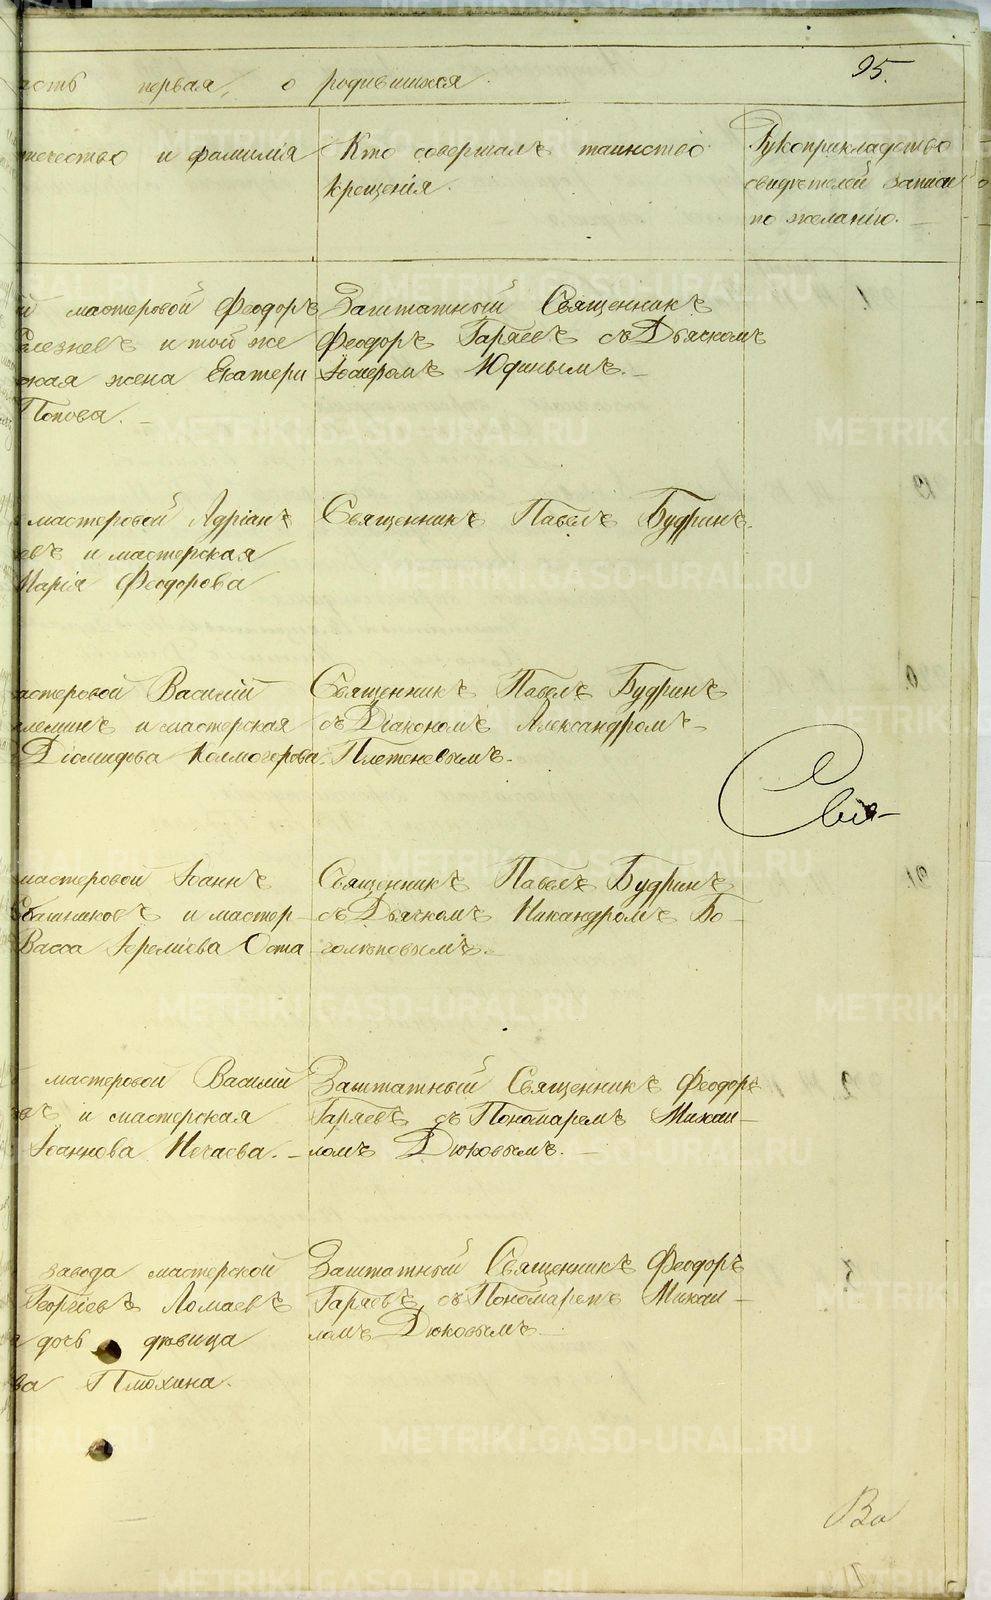 95.
асть первая, о родившихся.
течество и фамилія
Кто совершалъ таинство
крещенія.
Рукоприкладство
свидѣтелей записи
по желанію.
й мастеровой Феодоръ
елезневъ и той же
ская жена Екатери
Попова.
Заштатный Священникъ
Феодоръ Гаряевъ съ Дьячкомъ
Юдинымъ.
мастеровой Адріанъ
евъ и мастерская
Марія Феодорова
Священникъ Павелъ Будринъ.
астеровой Василій
и мастерская
Діомидова Колмогорова.
Священникъ Павелъ Будринъ
съ Діакономъ Александромъ
Плетеневымъ.
Сви-
мастеровой Іоаннъ
и мастер-
Васса Іеремиева Оста
Священникъ Павелъ Будринъ
съ Дьячкомъ Никандромъ Бо-
голѣповымъ.
мастеровой Василій
въ и мастерская
Іоаннова Нечаева.
Заштатный Священникъ Феодоръ
Гаряевъ съ Пономаремъ Михаи-
ломъ Дюковымъ.
завода мастерской
Георгіевъ Ломаевъ
дочь дѣвица
ва Плюхина.
Заштатный Священникъ Феодоръ
Гаряевъ съ Пономаремъ Михаи-
ломъ Дюковымъ.
METRIKI.GASO-URAL.RU